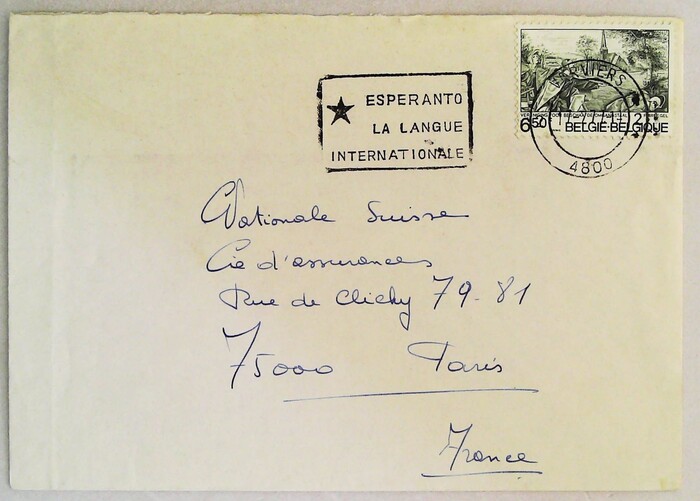 ESPERANTO
LA LANGUE
INTERNATIONALE
VERVIERS
4800
650
BELGIË-BELGIQUE
Nationale Suisse
Cie d'assurances
Rue de Clichy 79-81
75000 Paris
France